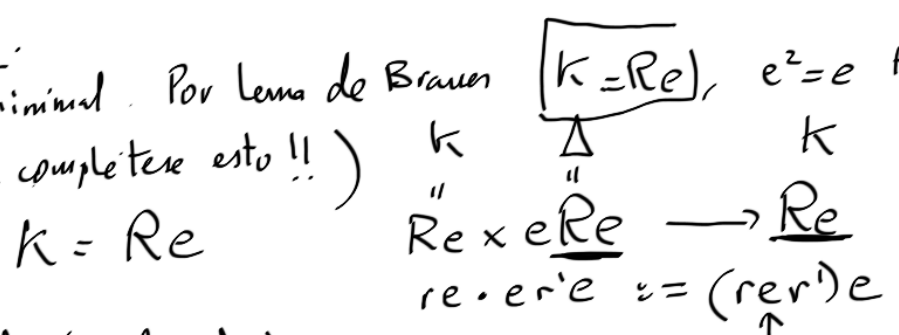 minimal. Por Lema de Brauer K=Re, e²=e
complétese esto!!) K Δ K
" "
K = Re Re × eRe → Re
re · er'e := (rer')e
↑